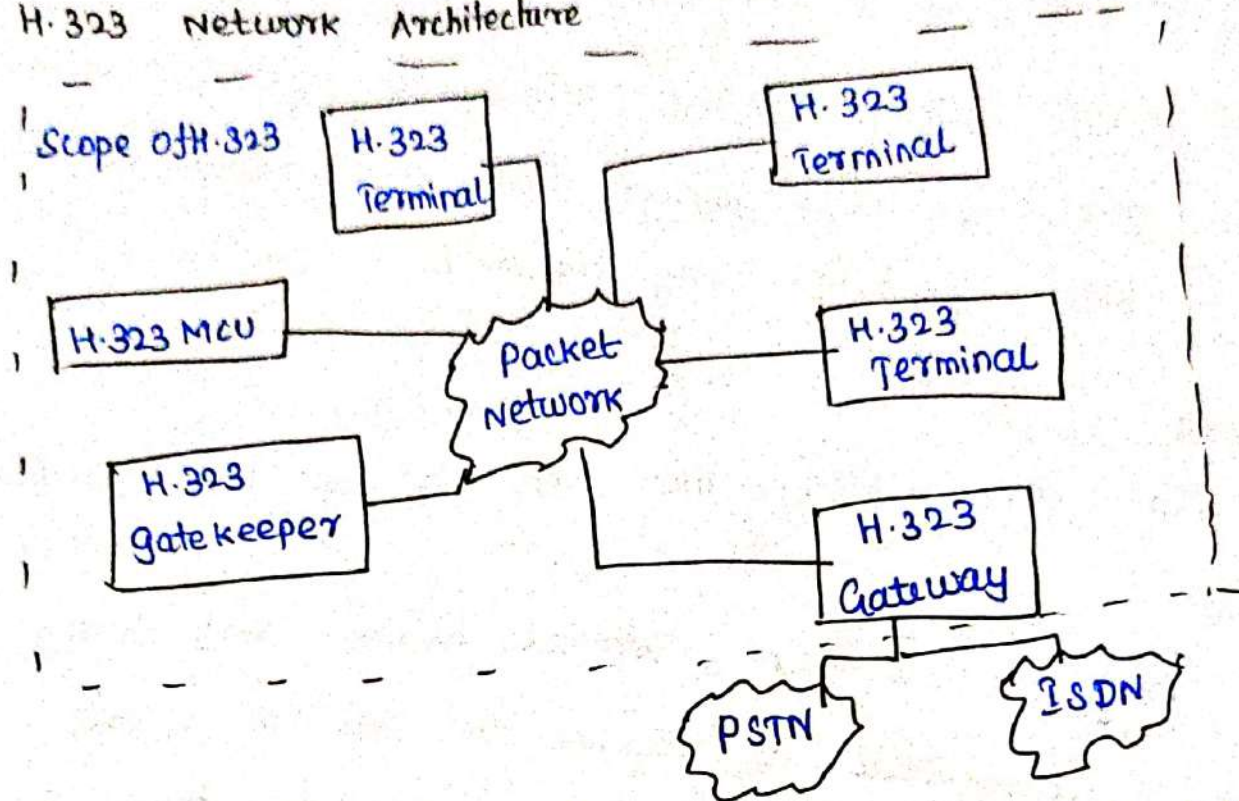 H.323 Network Architecture
Scope Of H.323
H.323
Terminal
H.323
Terminal
H.323 MCU
Packet
Network
H.323
Terminal
H.323
gate keeper
H.323
Gateway
PSTN
ISDN